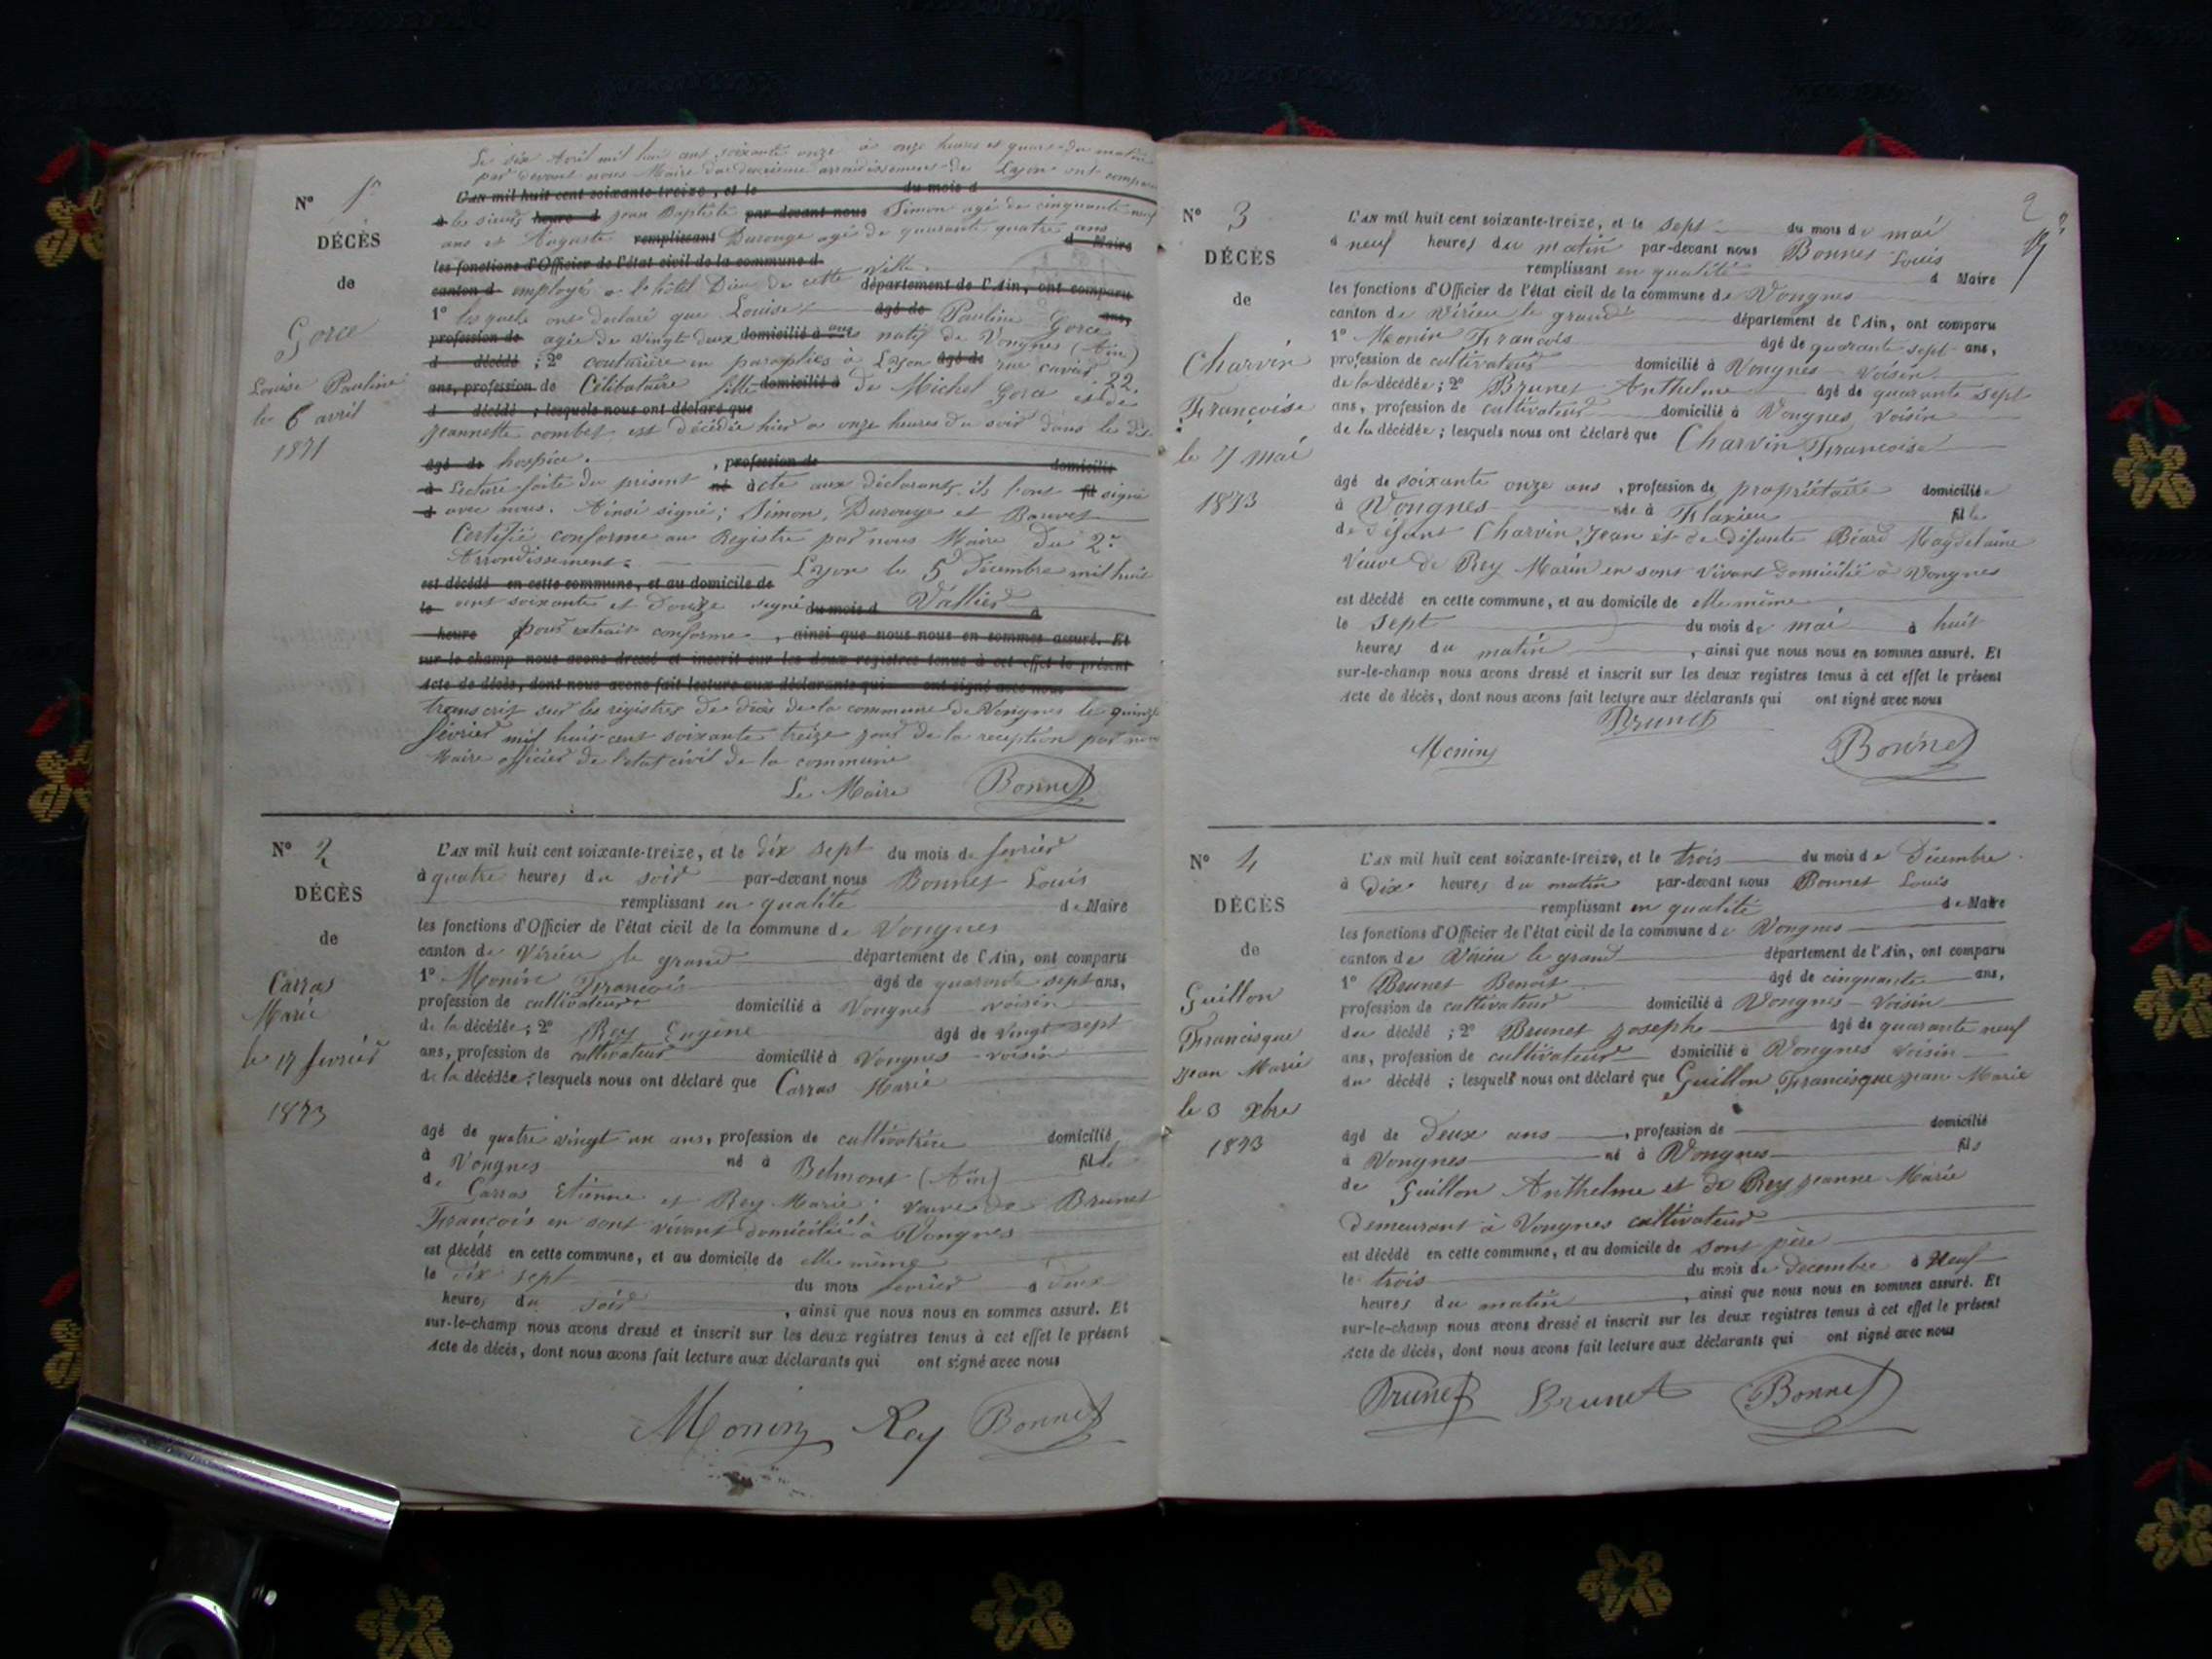 Le six Avril mil huit cent soixante onze à onze heures et quart du matin
par devant nous Maire du deuxième arrondissement de Lyon ont comparu
N° 1er
L'AN mil huit cent soixante-treize, et le du mois d
à les sieurs heure d Jean Baptiste par-devant nous Simon agé de cinquante neuf
DÉCÈS
ans et Auguste remplissant Durouge agé de quarante quatre ans d Maire
les fonctions d'Officier de l'état civil de la commune d
de
canton d employés a l'hôtel Dieu de cette ville département de l'Ain, ont comparu
1° lesquels ont declaré que Louise âgé de Pauline Gorce ans,
Gorce
profession de agée de vingt deux domicilié à ans natif de Vongnes (Ain)
d décédé ; 2° couturière en parapluies à Lyon âgé de rue
Louise Pauline
ans, profession de Célibataire fille domicilié à de Michel Gorce et de 22.
le 6 avril
d décédé ; lesquels nous ont déclaré que
1871
Jeannette combet est décédée hier a onze heures du soir dans le dit
âgé de hospice. , profession de domicilié
à Lecture faite du présent né à acte aux déclarants ils l'ont fil signé
d avec nous. Ainsi signé ; Simon, Durouge et Bouvet
Certifié conforme au Registre par nous Maire du 2e
Arrondissement. Lyon le 5 Décembre mil huit
est décédé en cette commune, et au domicile de
le cent soixante et douze signé du mois d Vallier à
heure pour extrait conforme , ainsi que nous nous en sommes assuré. Et
sur-le-champ nous avons dressé et inscrit sur les deux registres tenus à cet effet le présent
Acte de décès, dont nous avons fait lecture aux déclarants qui ont signé avec nous
transcrit sur les registres de décès de la commune de Vongnes le quinze
février mil huit cent soixante treize jour de la reception par nous
Maire officier de l'état civil de la commune
Le Maire Bonnet
N° 2
DÉCÈS
de
Carras
Marie
le 17 fevrier
1873
L'AN mil huit cent soixante-treize, et le dix sept du mois de fevrier
à quatre heures du soir par-devant nous Bonnet Louis
remplissant en qualité de Maire
les fonctions d'Officier de l'état civil de la commune de Vongnes
canton de Virieu le grand département de l'Ain, ont comparu
1° Monin François âgé de quarante sept ans,
profession de cultivateur domicilié à Vongnes voisin
de la décédée ; 2° Rey Eugène âgé de vingt sept
ans, profession de cultivateur domicilié à Vongnes voisin
de la décédée ; lesquels nous ont déclaré que Carras Marie
âgé de quatre vingt un ans, profession de cultivatrice domicilié
à Vongnes né à Belmont (Ain) fille
de Carras Etienne et Rey Marie veuve de Brunet
François en sont vivant domicilié à Vongnes
est décédé en cette commune, et au domicile de elle même
le dix sept du mois fevrier à deux
heures du soir , ainsi que nous nous en sommes assuré. Et
sur-le-champ nous avons dressé et inscrit sur les deux registres tenus à cet effet le présent
Acte de décès, dont nous avons fait lecture aux déclarants qui ont signé avec nous
Monin Rey Bonnet
2
N° 3
DÉCÈS
de
Charvin
Françoise
le 7 mai
1873
L'AN mil huit cent soixante-treize, et le sept du mois de mai
à neuf heures du matin par-devant nous Bonnet Louis
remplissant en qualité d Maire
les fonctions d'Officier de l'état civil de la commune de Vongnes
canton de Virieu le grand département de l'Ain, ont comparu
1° Monin François âgé de quarante sept ans,
profession de cultivateur domicilié à Vongnes voisin
de la décédée ; 2° Brunet Anthelme âgé de quarante sept
ans, profession de cultivateur domicilié à Vongnes voisin
de la décédée ; lesquels nous ont déclaré que Charvin Françoise
âgé de soixante onze ans , profession de propriétaire domiciliée
à Vongnes née à Flaxieu fille
de défunt Charvin Jean et de défunte Béard Magdelaine
Veuve de Rey Marin en sont vivant domicilié à Vongnes
est décédé en cette commune, et au domicile de elle même
le sept du mois de mai à huit
heures du matin , ainsi que nous nous en sommes assuré. Et
sur-le-champ nous avons dressé et inscrit sur les deux registres tenus à cet effet le présent
Acte de décès, dont nous avons fait lecture aux déclarants qui ont signé avec nous
Brunet
Monin Bonnet
N° 4
DÉCÈS
de
Guillon
Francisque
Jean Marie
le 3 xbre
1873
L'AN mil huit cent soixante-treize, et le trois du mois de Décembre
à dix heures du matin par-devant nous Bonnet Louis
remplissant en qualité de Maire
les fonctions d'Officier de l'état civil de la commune de Vongnes
canton de Virieu le grand département de l'Ain, ont comparu
1° Brunet Benoit âgé de cinquante ans,
profession de cultivateur domicilié à Vongnes voisin
du décédé ; 2° Brunet Josephe âgé de quarante neuf
ans, profession de cultivateur domicilié à Vongnes voisin
du décédé ; lesquels nous ont déclaré que Guillon Francisque Jean Marie
âgé de deux ans , profession de domicilié
à Vongnes né à Vongnes fils
de Guillon Anthelme et de Rey Jeanne Marie
demeurant à Vongnes cultivateur
est décédé en cette commune, et au domicile de sont père
le trois du mois de decembre à Neuf
heures du matin , ainsi que nous nous en sommes assuré. Et
sur-le-champ nous avons dressé et inscrit sur les deux registres tenus à cet effet le présent
Acte de décès, dont nous avons fait lecture aux déclarants qui ont signé avec nous
Brunet Brunet Bonnet